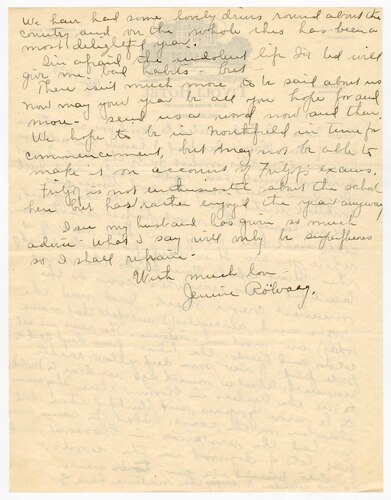 We have had some lovely drives round about the
country and on the whole this has been a
most delightful year.
I'm afraid the indolent life I've led will
give me bad habits - but
There isn't much more to be said about us
now may your year be all you hope for and
more - send us a word now and then.
We hope to be in Northfield in time for
commencement, but may not be able to
make it on account of exams.
is not enthusiastic about the school
here but has rather enjoyed the year anyway
I see my husband has given so much
advice - What I say will only be superfluous
so I shall refrain -
With much love -
Jennie Rölvaag.